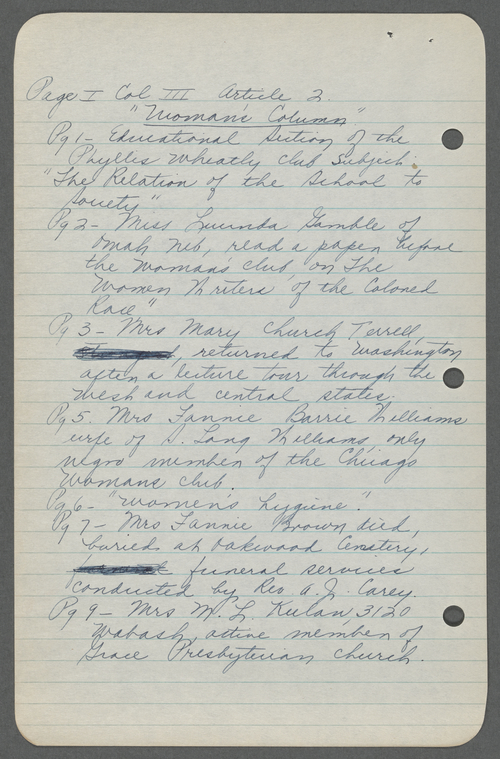 Page I Col III Article 2.
"Woman's Column"
Pg 1- Educational Section of the
Phyllis Wheatly Club Subject:
"The Relation of the School to
Society"
Pg 2- Miss Lucinda Gamble of
Omah Neb, read a paper before
the Woman's Club, on "The
Women Writers of the Colored
Race"
Pg 3- Mrs Mary Church Terrell,
returned to Washington
after a lecture tour through the
West and central states.
Pg 5. Mrs Fannie Barrie Williams
wife of S. Lang Williams, only
negro member of the Chicago
Womans Club.
Pg 6- "Women's hygiene".
Pg 7- Mrs Fannie Brown died,
buried at Oakwood Cemetery,
funeral services
conducted by Rev A. J. Carey.
Pg 9- Mrs M. L. 3120
Wabash, active member of
Grace Presbyterian church.